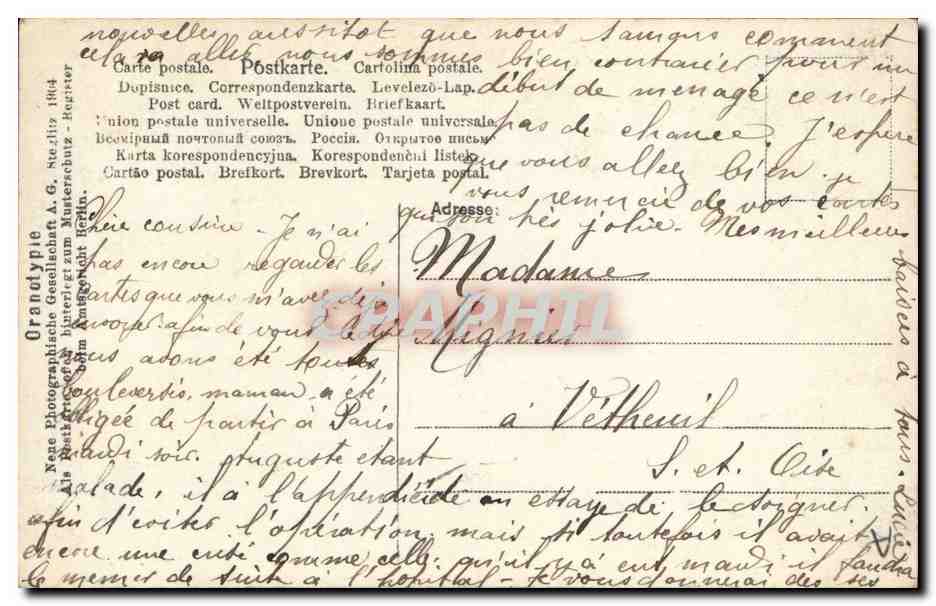 Chère cousine. Je n'ai
pas encore regarder les
cartes que vous m'avez déjà
envoyer afin de vous le dire
nous avons été tous
bouleversés, maman a été
obligée de partir à Paris
mardi soir. Auguste étant
malade, il à l'appendicide on essaye de le soigner
afin d'eviter l'opération, mais si toutefois il avait
encore une crise comme celle qu'il y à eut mardi il faudra
le mener de suite à l'hôpital - Je vous donnerai de ses
nouvelles aussitot que nous saurons comment
cela va aller, nous sommes bien contrarier pour un
début de menage ce n'est
pas de chance. J'espère
que vous allez bien. je
vous remercie de vos cartes
qui son très jolie. Mes meilleurs
baisers à tous. Lucie
Carte postale. Postkarte. Cartolina postale.
Dopisnice. Correspondenzkarte. Levelező-Lap.
Post card. Weltpostverein. Briefkaart.
Union postale universelle. Unione postale universale.
Всемірный почтовый союзъ. Россія. Открытое письмо
Karta korespondencyjna. Korespondenční listek.
Cartão postal. Brefkort. Brevkort. Tarjeta postal.
Adresse:
Madame
Mignier
à Vétheuil
S. et. Oise
Oranotypie
Neue Photographische Gesellschaft A. G. Steglitz 1904
Als Postkarte offen hinterlegt zum Musterschutz-Register
beim Amtsgericht Berlin.
CPAPHIL